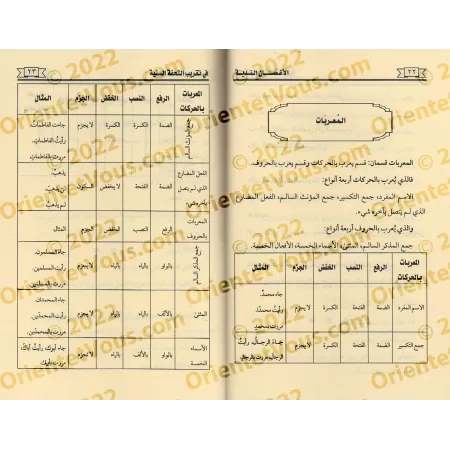 ٢٢
الأغصان الندية
المعربات
المعربات قسمان: قسم يعرب بالحركات وقسم يعرب بالحروف.
فالذي يُعرب بالحركات أربعة أنواع:
الاسم المفرد، جمع التكسير، جمع المؤنث السالم، الفعل المضارع
الذي لم يتصل بآخره شيء.
والذي يُعرب بالحروف أربعة أنواع:
جمع المذكر السالم، المثنى، الأسماء الخمسة، الأفعال الخمسة.
المعربات بالحركات الرفع النصب الخفض الجزم المثال
الاسم المفرد الضمة الفتحة الكسرة لا يجزم جاء محمدٌ. رأيتُ محمدًا. مررت بمحمد
جمع التكسير الضمة الفتحة الكسرة لا يجزم جاءَ الرجالُ، رأيتُ الرجالَ، مررت بالرجالِ
في تقريب التحفة السنية
٢٣
المعربات بالحركات الرفع النصب الخفض الجزم المثال
جمع المؤنث السالم الضمة الكسرة الكسرة لا يجزم جاءت الفاطماتُ. رأيتُ الفاطماتِ. مررت بالفاطماتِ
الفعل المضارع الذي لم يتصل بآخره شيء الضمة الفتحة لا يخفض السكون يذهبُ لن يذهبَ لم يذهبْ
المعربات بالحروف الرفع النصب الخفض الجزم المثال
جمع المذكر السالم بالواو بالياء بالياء لا يجزم جاء المسلمون. رأيتُ المسلمين مررت بالمسلمين
المثنى بالألف بالياء بالياء لا يجزم جاء المحمدان. رأيت المحمدين. مررت بالمحمدين.
الأسماء الخمسة بالواو بالألف بالياء لا يجزم جاء أبوك، رأيتُ أباك، مررت بأبيك
© 2022
OrientetVous.com